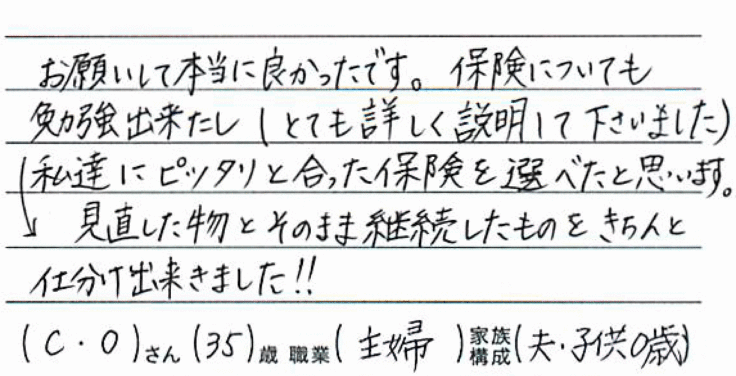 お願いして本当に良かったです。保険についても
勉強出来たし(とても詳しく説明して下さいました)
私達にピッタリと合った保険を選べたと思います。
↓ 見直した物とそのまま継続したものをきちんと
仕分け出来きました!!
(C・O)さん(35)歳 職業(主婦)家族構成(夫・子供0歳)